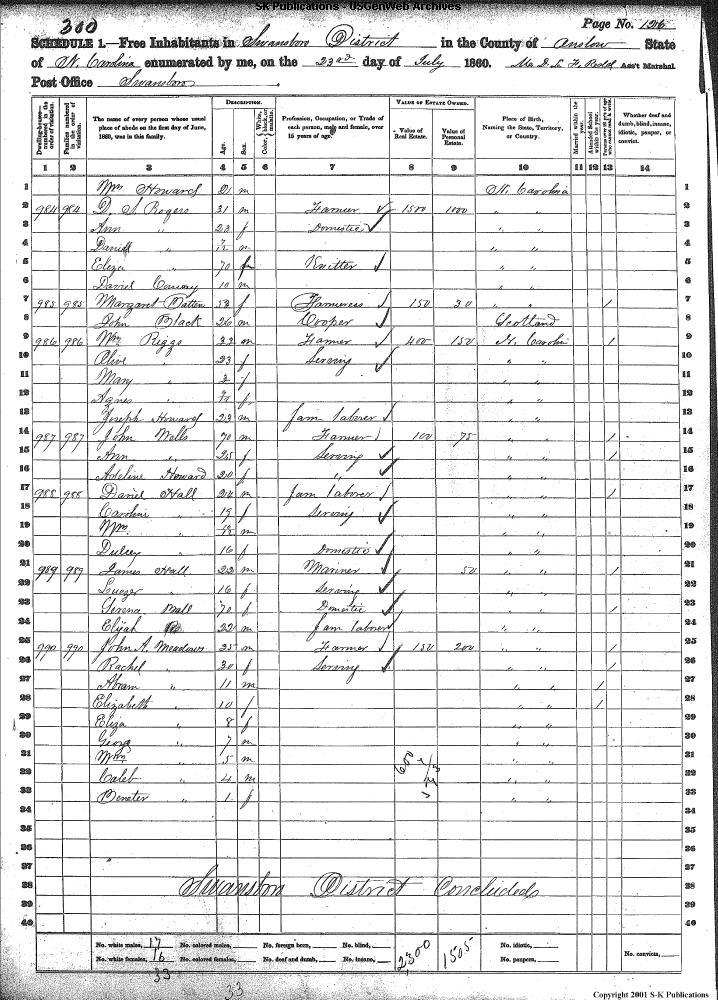 SK Publications - USGenWeb Archives
300
Page No. 156
SCHEDULE 1.—Free Inhabitants in Swansboro District in the County of Onslow State
of N. Carolina enumerated by me, on the 23rd day of July 1860. Ass't Marshal
Post Office Swansboro
Dwelling-houses—numbered in the order of visitation.
Families numbered in the order of visitation.
The name of every person whose usual place of abode on the first day of June, 1860, was in this family.
DESCRIPTION.
Age.
Sex.
Color, White, black, or mulatto.
Profession, Occupation, or Trade of each person, male and female, over 15 years of age.
VALUE OF ESTATE OWNED.
Value of Real Estate.
Value of Personal Estate.
Place of Birth, Naming the State, Territory, or Country.
Married within the year.
Attended School within the year.
Persons over 20 y'rs of age who cannot read & write.
Whether deaf and dumb, blind, insane, idiotic, pauper, or convict.
1 2 3 4 5 6 7 8 9 10 11 12 13 14
1 Wm Howard 21 m N. Carolina 1
2 984 984 D. S. Rogers 31 m Farmer 1500 1000 " " 2
3 Ann " 23 f Domestic " " 3
4 Daniel " m " " 4
5 Eliza " 70 f Knitter " " 5
6 Daniel 10 m " " 6
7 985 985 Margaret Patten 53 f Farmeress 150 30 " " / 7
8 John Black 26 m Cooper Scotland 8
9 986 986 Wm Riggs 32 m Farmer 400 150 N. Carolin / 9
10 Olive " 23 f Serving " " 10
11 Mary " 3 f " " 11
12 Agnes " f " " 12
13 Joseph Howard 23 m farm laborer " " 13
14 987 987 John Mells 70 m Farmer 100 75 " " / 14
15 Ann " 25 f Serving " " / 15
16 Adeline Howard 20 f " " " 16
17 988 988 Daniel Hall 24 m farm laborer " " / 17
18 Caroline " 19 f Serving " " 18
19 Wm. " m " " 19
20 Dulcey " 16 f Domestic " " 20
21 989 989 James Hall 22 m Mariner 50 " " / 21
22 " 16 f Serving " " 22
23 Serena Mall 70 f Domestic " " / 23
24 Elijah 22 m farm laborer " " 24
25 990 990 John A. Meadows 35 m Farmer 150 200 " " / 25
26 Rachel " 30 f Serving " " / 26
27 Abram " 11 m " " / 27
28 Elizabeth " 10 f " " / 28
29 Eliza " 8 f " " 29
30 Georg " 7 m " " 30
31 Wm " 5 m " " 31
32 Caleb " 4 m " " 32
33 " 1 f " " 33
34 34
35 35
36 36
37 37
38 Swansboro District Concluded 38
39 39
40 40
No. white males, 17 No. colored males, No. foreign born, No. blind, 2300 1505 No. idiotic,
No. white females, 16 No. colored females, No. deaf and dumb, No. insane, No. paupers, No. convicts,
33
33
Copyright 2001 S-K Publications